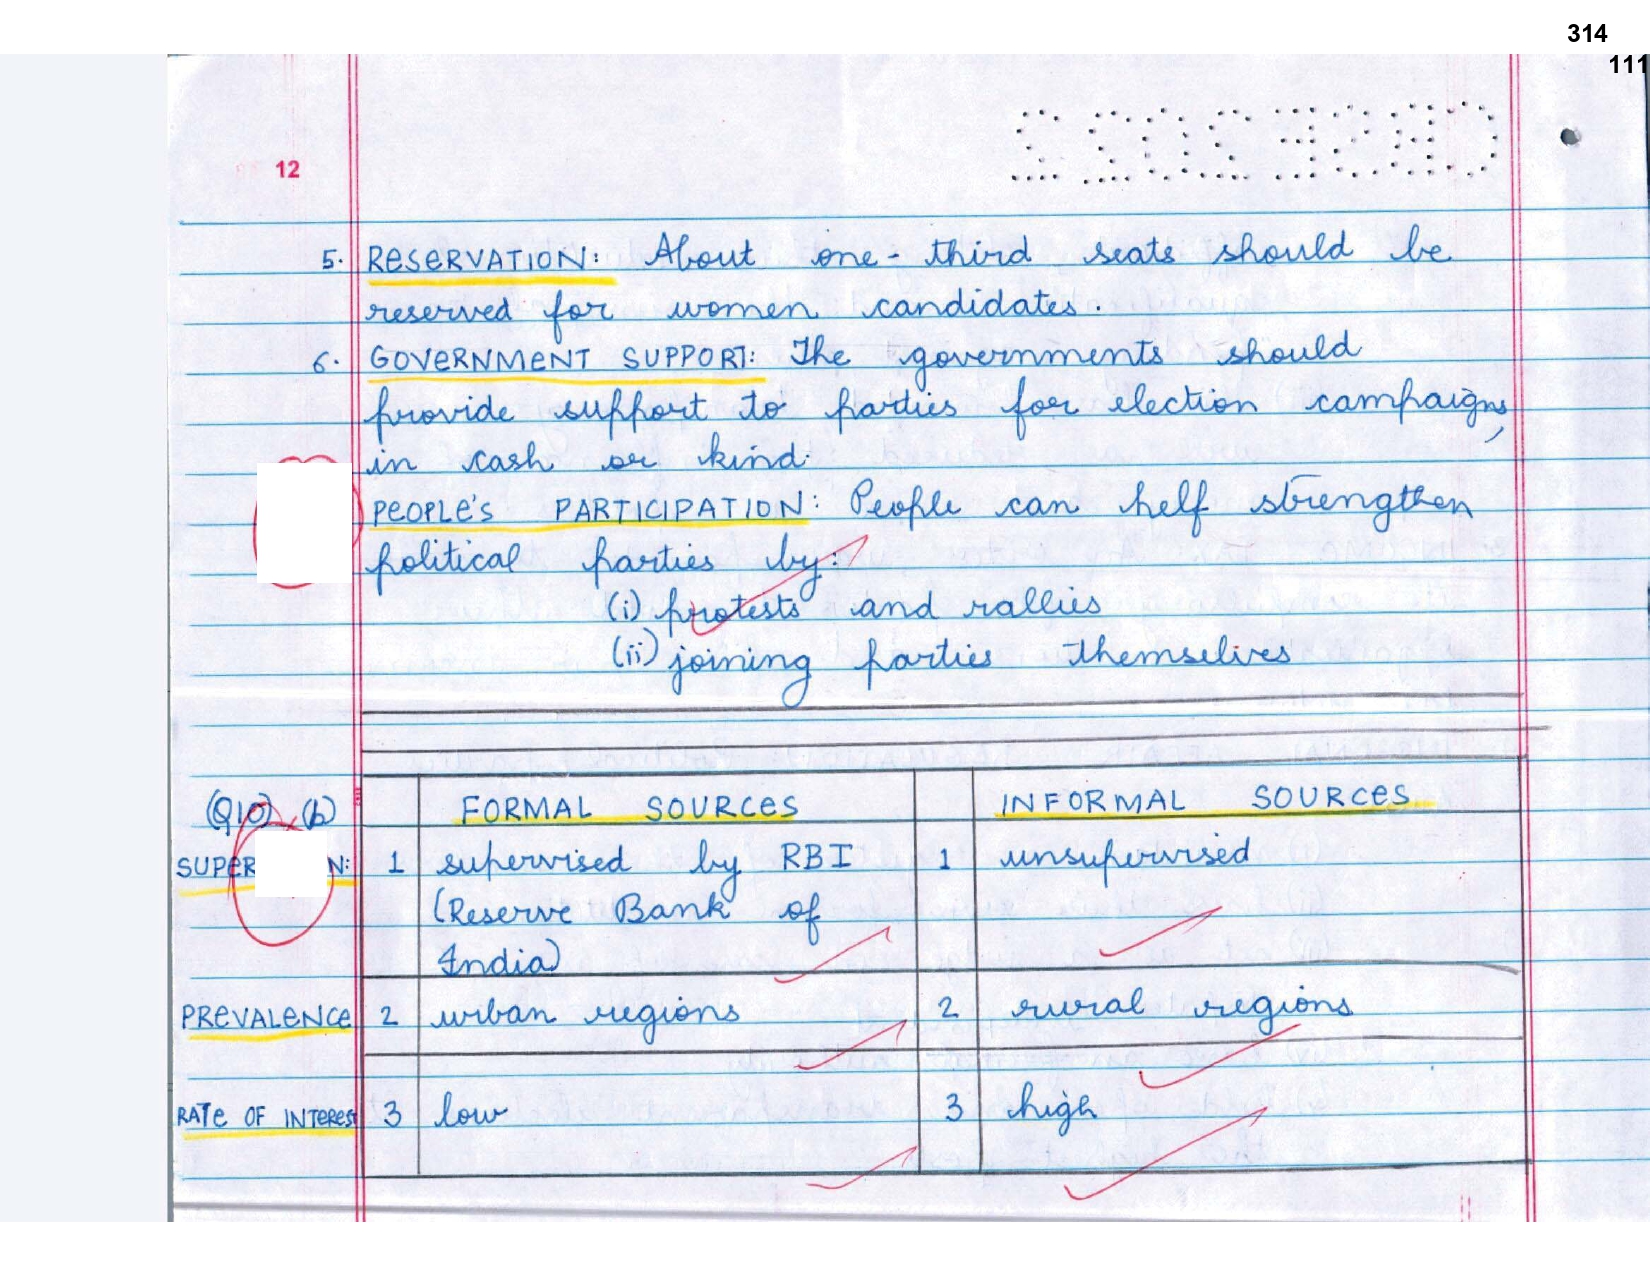 314
111
CBSE 2022
12
5. RESERVATION: About one-third seats should be
reserved for women candidates.
6. GOVERNMENT SUPPORT: The governments should
provide support to parties for election campaigns,
in cash or kind.
PEOPLE'S PARTICIPATION: People can help strengthen
political parties by:
(i) protests and rallies
(ii) joining parties themselves
(Q10) (b) FORMAL SOURCES INFORMAL SOURCES
SUPER N: 1 supervised by RBI 1 unsupervised
(Reserve Bank of
India)
PREVALENCE 2 urban regions 2 rural regions
RATE OF INTEREST 3 low 3 high